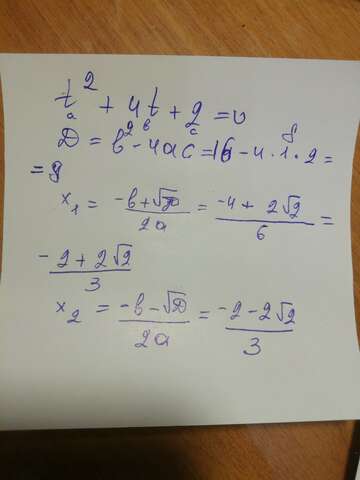 t² + 4t + 2 = 0
a в c
D = в² - 4ac = 16 - 4 · 1 · 2 =
= 8
x₁ = (-в + √D)/2a = (-4 + 2√2)/6 =
(-2 + 2√2)/3
x₂ = (-в - √D)/2a = (-2 - 2√2)/3